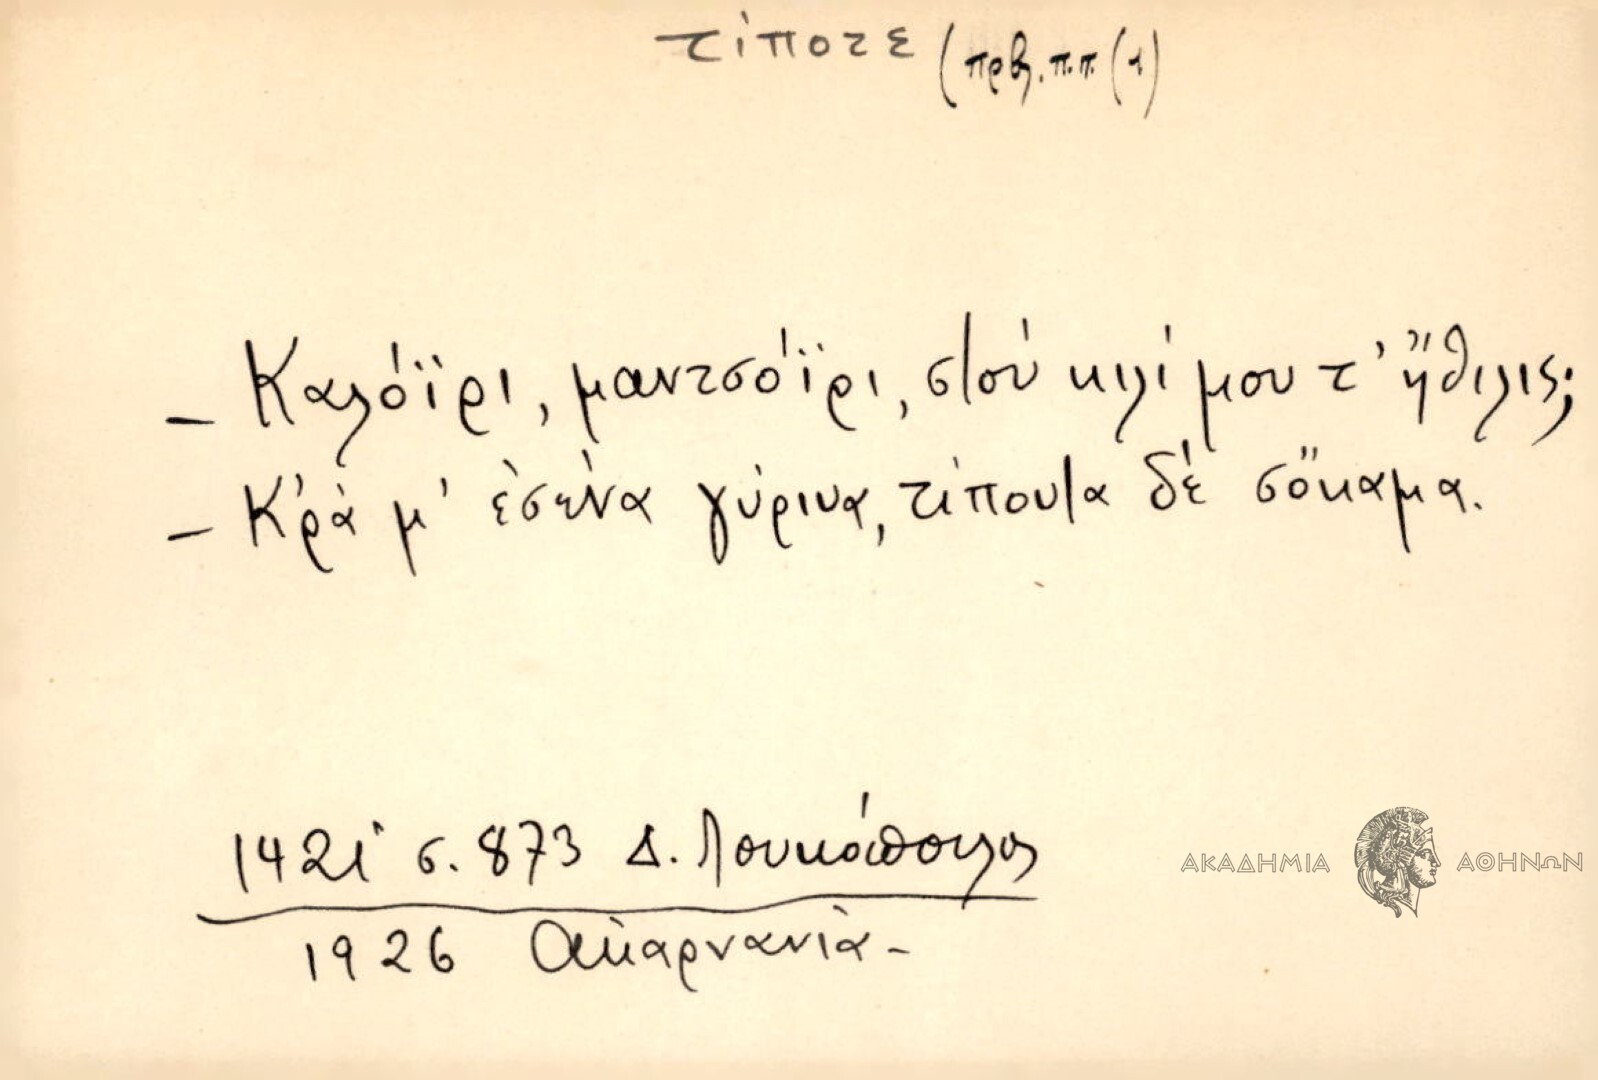 τίποτε (πρβ. π.π. (1)
– Καλόϊρι, μαντσόϊρι, στού κιλί μου τ' ἤθιλις;
– Κ'ρὰ μ' ἐσένα γύριυα, τίπουτα δέ σὄκαμα.
1421 σ. 873 Δ. Λουκόπουλος
1926 Ακαρνανία -
ΑΚΑΔΗΜΙΑ ΑΘΗΝΩΝ